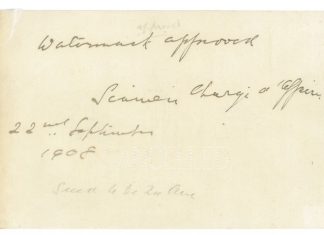 Watermark approved
Siamese Chargé d'Affaires.
22nd September
1908